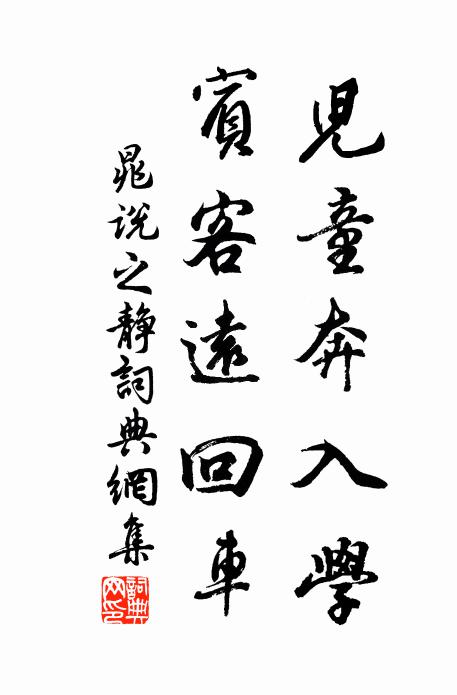 兒童奔入學
賓客遠回車
晁說之靜詞典網集
詞典網印